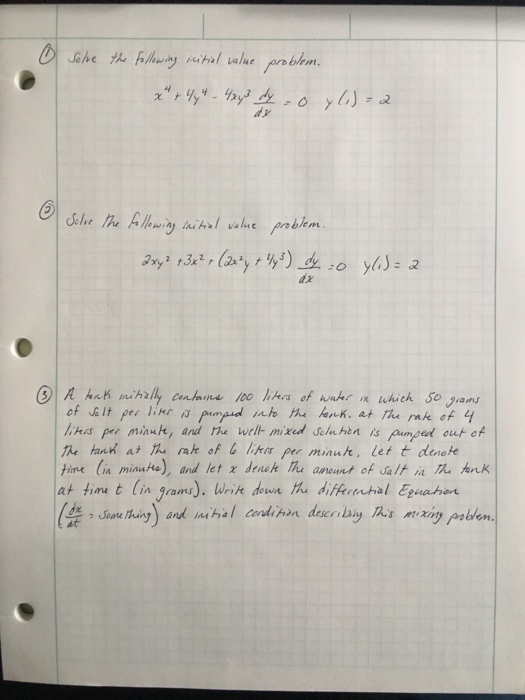 ① Solve the following initial value problem.
x⁴ + 4y⁴ - 4xy³ dy/dx = 0 y(1) = 2
② Solve the following initial value problem.
2xy² + 3x² + (2x²y + 4y³) dy/dx = 0 y(1) = 2
③ A tank initially contains 100 liters of water in which 50 grams
of salt per liter is pumped into the tank. at the rate of 4
liters per minute, and the well-mixed solution is pumped out of
the tank at the rate of 6 liters per minute. Let t denote
time (in minutes), and let x denote the amount of salt in the tank
at time t (in grams). Write down the differential Equation
(dx/dt = something) and initial condition describing this mixing problem.